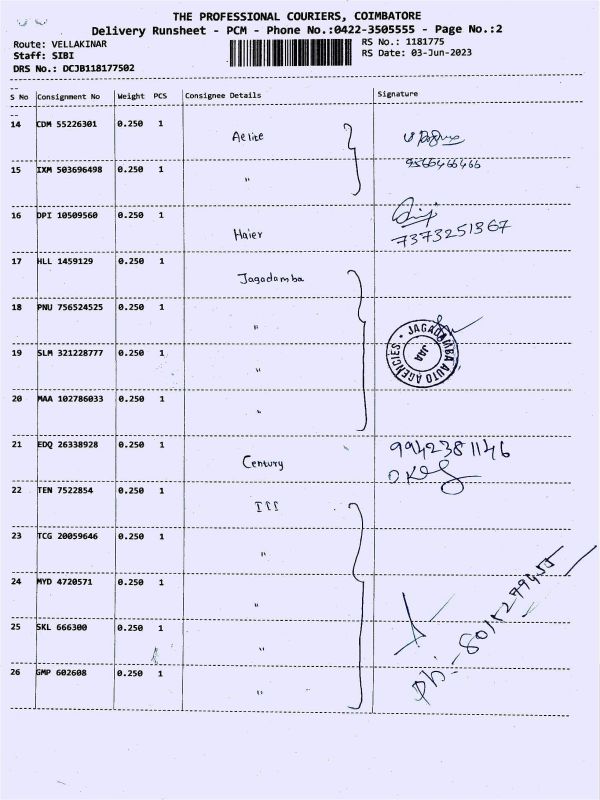 THE PROFESSIONAL COURIERS, COIMBATORE
Delivery Runsheet - PCM - Phone No.:0422-3505555 - Page No.:2
Route: VELLAKINAR RS No.: 1181775
Staff: SIBI RS Date: 03-Jun-2023
DRS No.: DCJB118177502
S No Consignment No Weight PCS Consignee Details Signature
14 CDM 55226301 0.250 1 Aelite
15 IXM 503696498 0.250 1 " 9566466466
16 DPI 10509560 0.250 1 Haier 7373251367
17 HLL 1459129 0.250 1 Jagadamba
18 PNU 756524525 0.250 1 "
19 SLM 321228777 0.250 1 " JAGADAMBA AUTO AGENCIES JAA
20 MAA 102786033 0.250 1 "
21 EDQ 26338928 0.250 1 Century 9942381146
22 TEN 7522854 0.250 1 III
23 TCG 20059646 0.250 1 "
24 MYD 4720571 0.250 1 "
25 SKL 666300 0.250 1 "
26 GMP 602608 0.250 1 "
Ph:-